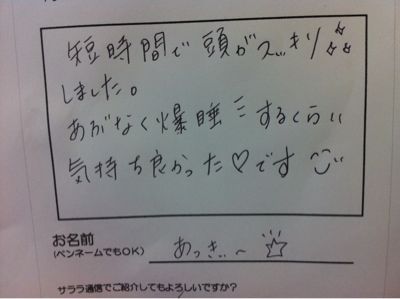 短時間で頭がスッキリ☆☆☆
しました。
あぶなく爆睡ミするくらい
気持ち良かった♡です
お名前
(ペンネームでもOK)
あっき〜☆
サララ通信でご紹介してもよろしいですか?